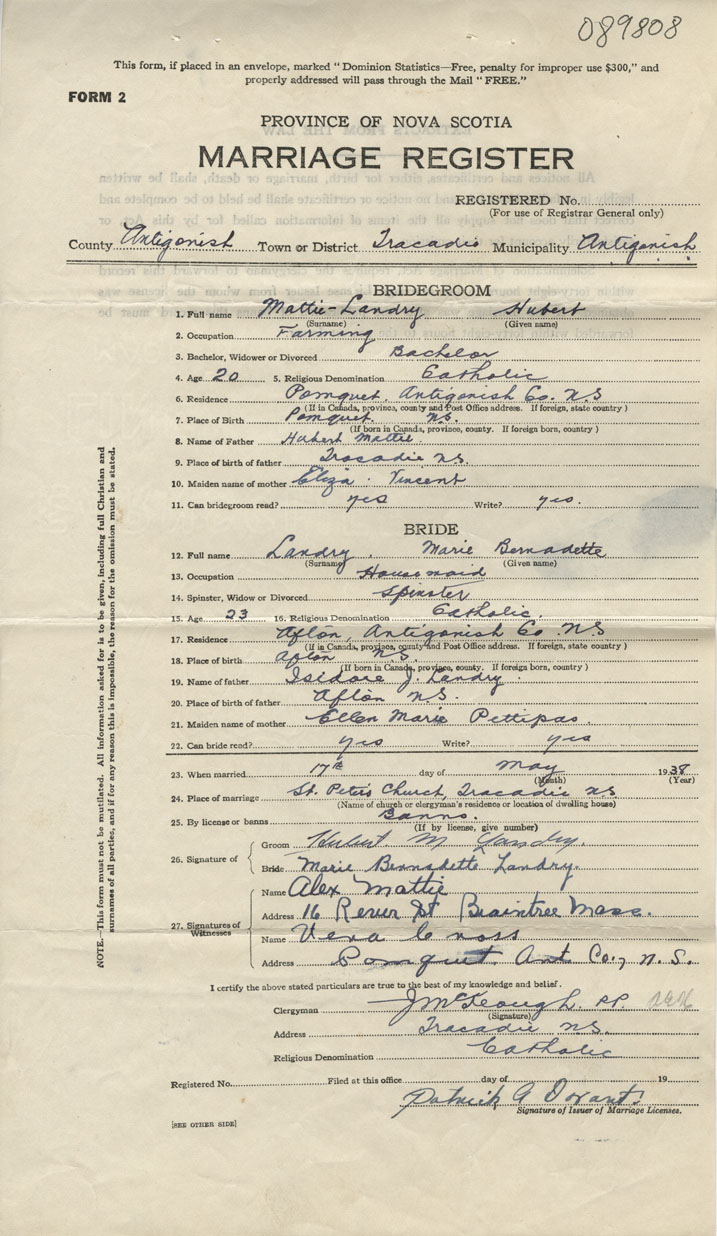 089808
This form, if placed in an envelope, marked "Dominion Statistics—Free, penalty for improper use $300," and
properly addressed will pass through the Mail "FREE."
FORM 2
PROVINCE OF NOVA SCOTIA
MARRIAGE REGISTER
REGISTERED No.
(For use of Registrar General only)
County Antigonish Town or District Tracadie Municipality Antigonish
BRIDEGROOM
1. Full name Mattie-Landry Hubert
(Surname) (Given name)
2. Occupation Farming
3. Bachelor, Widower or Divorced Bachelor
4. Age 20 5. Religious Denomination Catholic
6. Residence Pomquet, Antigonish Co. N.S
(If in Canada, province, county and Post Office address. If foreign, state country)
7. Place of Birth Pomquet N.S.
(If born in Canada, province, county. If foreign born, country)
8. Name of Father Hubert Mattie
9. Place of birth of father Tracadie N.S.
10. Maiden name of mother Eliza Vincent
11. Can bridegroom read? yes Write? yes.
BRIDE
12. Full name Landry, Marie Bernadette
(Surname) (Given name)
13. Occupation Housemaid
14. Spinster, Widow or Divorced Spinster
15. Age 23 16. Religious Denomination Catholic
17. Residence Afton, Antigonish Co N.S
(If in Canada, province, county and Post Office address. If foreign, state country)
18. Place of birth Afton N.S.
(If born in Canada, province, county. If foreign born, country)
19. Name of father Isidore J. Landry
20. Place of birth of father Afton N.S.
21. Maiden name of mother Ellen Marie Pettipas
22. Can bride read? yes Write? yes
23. When married 17th day of May 1938
(Month) (Year)
24. Place of marriage St. Peters Church, Tracadie N.S
(Name of church or clergyman's residence or location of dwelling house)
25. By license or banns Banns.
(If by license, give number)
26. Signature of
Groom Hubert M Landry.
Bride Marie Bernadette Landry.
27. Signatures of Witnesses
Name Alex Mattie
Address 16 River St Braintree Mass.
Name Vena
Address Pomquet Ant Co., N.S.
I certify the above stated particulars are true to the best of my knowledge and belief.
Clergyman J McKeough P.P.
(Signature)
Address Tracadie N.S.
Religious Denomination Catholic
Registered No. Filed at this office day of 19
Patrick G
Signature of Issuer of Marriage Licenses.
[SEE OTHER SIDE]
NOTE.—This form must not be mutilated. All information asked for is to be given, including full Christian and
surnames of all parties, and if for any reason this is impossible, the reason for the omission must be stated.